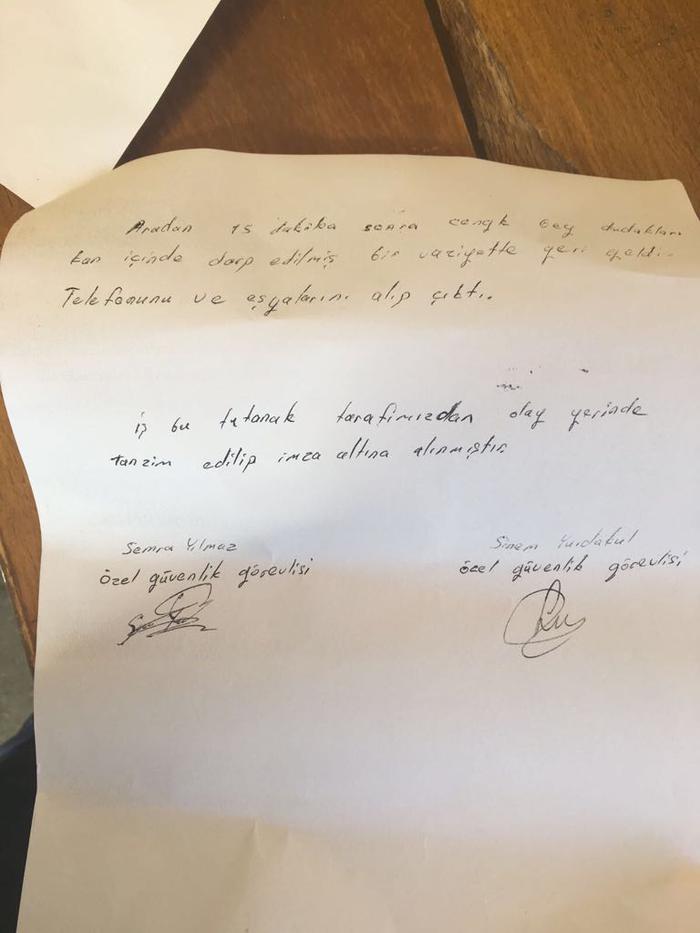 Aradan 15 dakika sonra cengk bey dudakları
kan içinde darp edilmiş bir vaziyette geri geldi.
Telefonunu ve eşyalarını alıp çıktı.
iş bu tutanak tarafımızdan olay yerinde
tanzim edilip imza altına alınmıştır.
Semra Yılmaz
Sinem Yurdakul
özel güvenlik görevlisi
özel güvenlik görevlisi